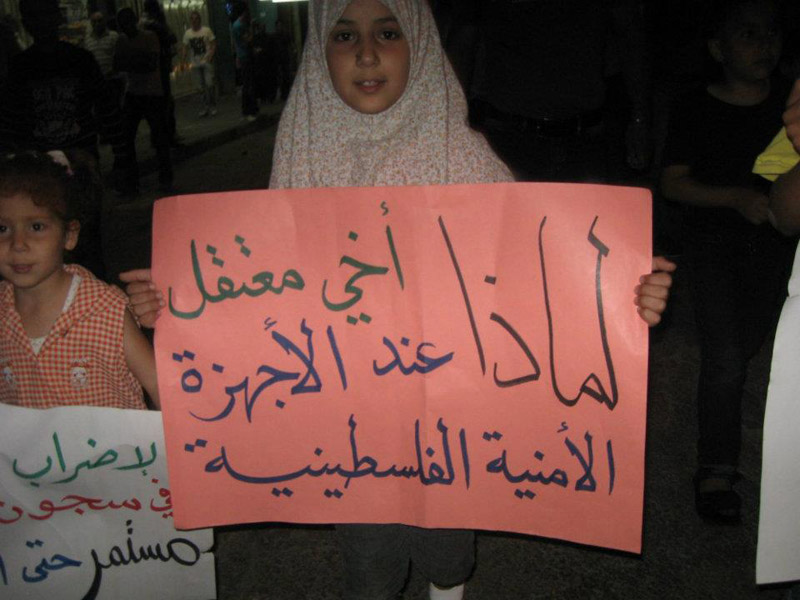 لماذا أخي معتقل
عند الأجهزة
الأمنية الفلسطينية
لإضراب
في سجون
مستمر حتى ا